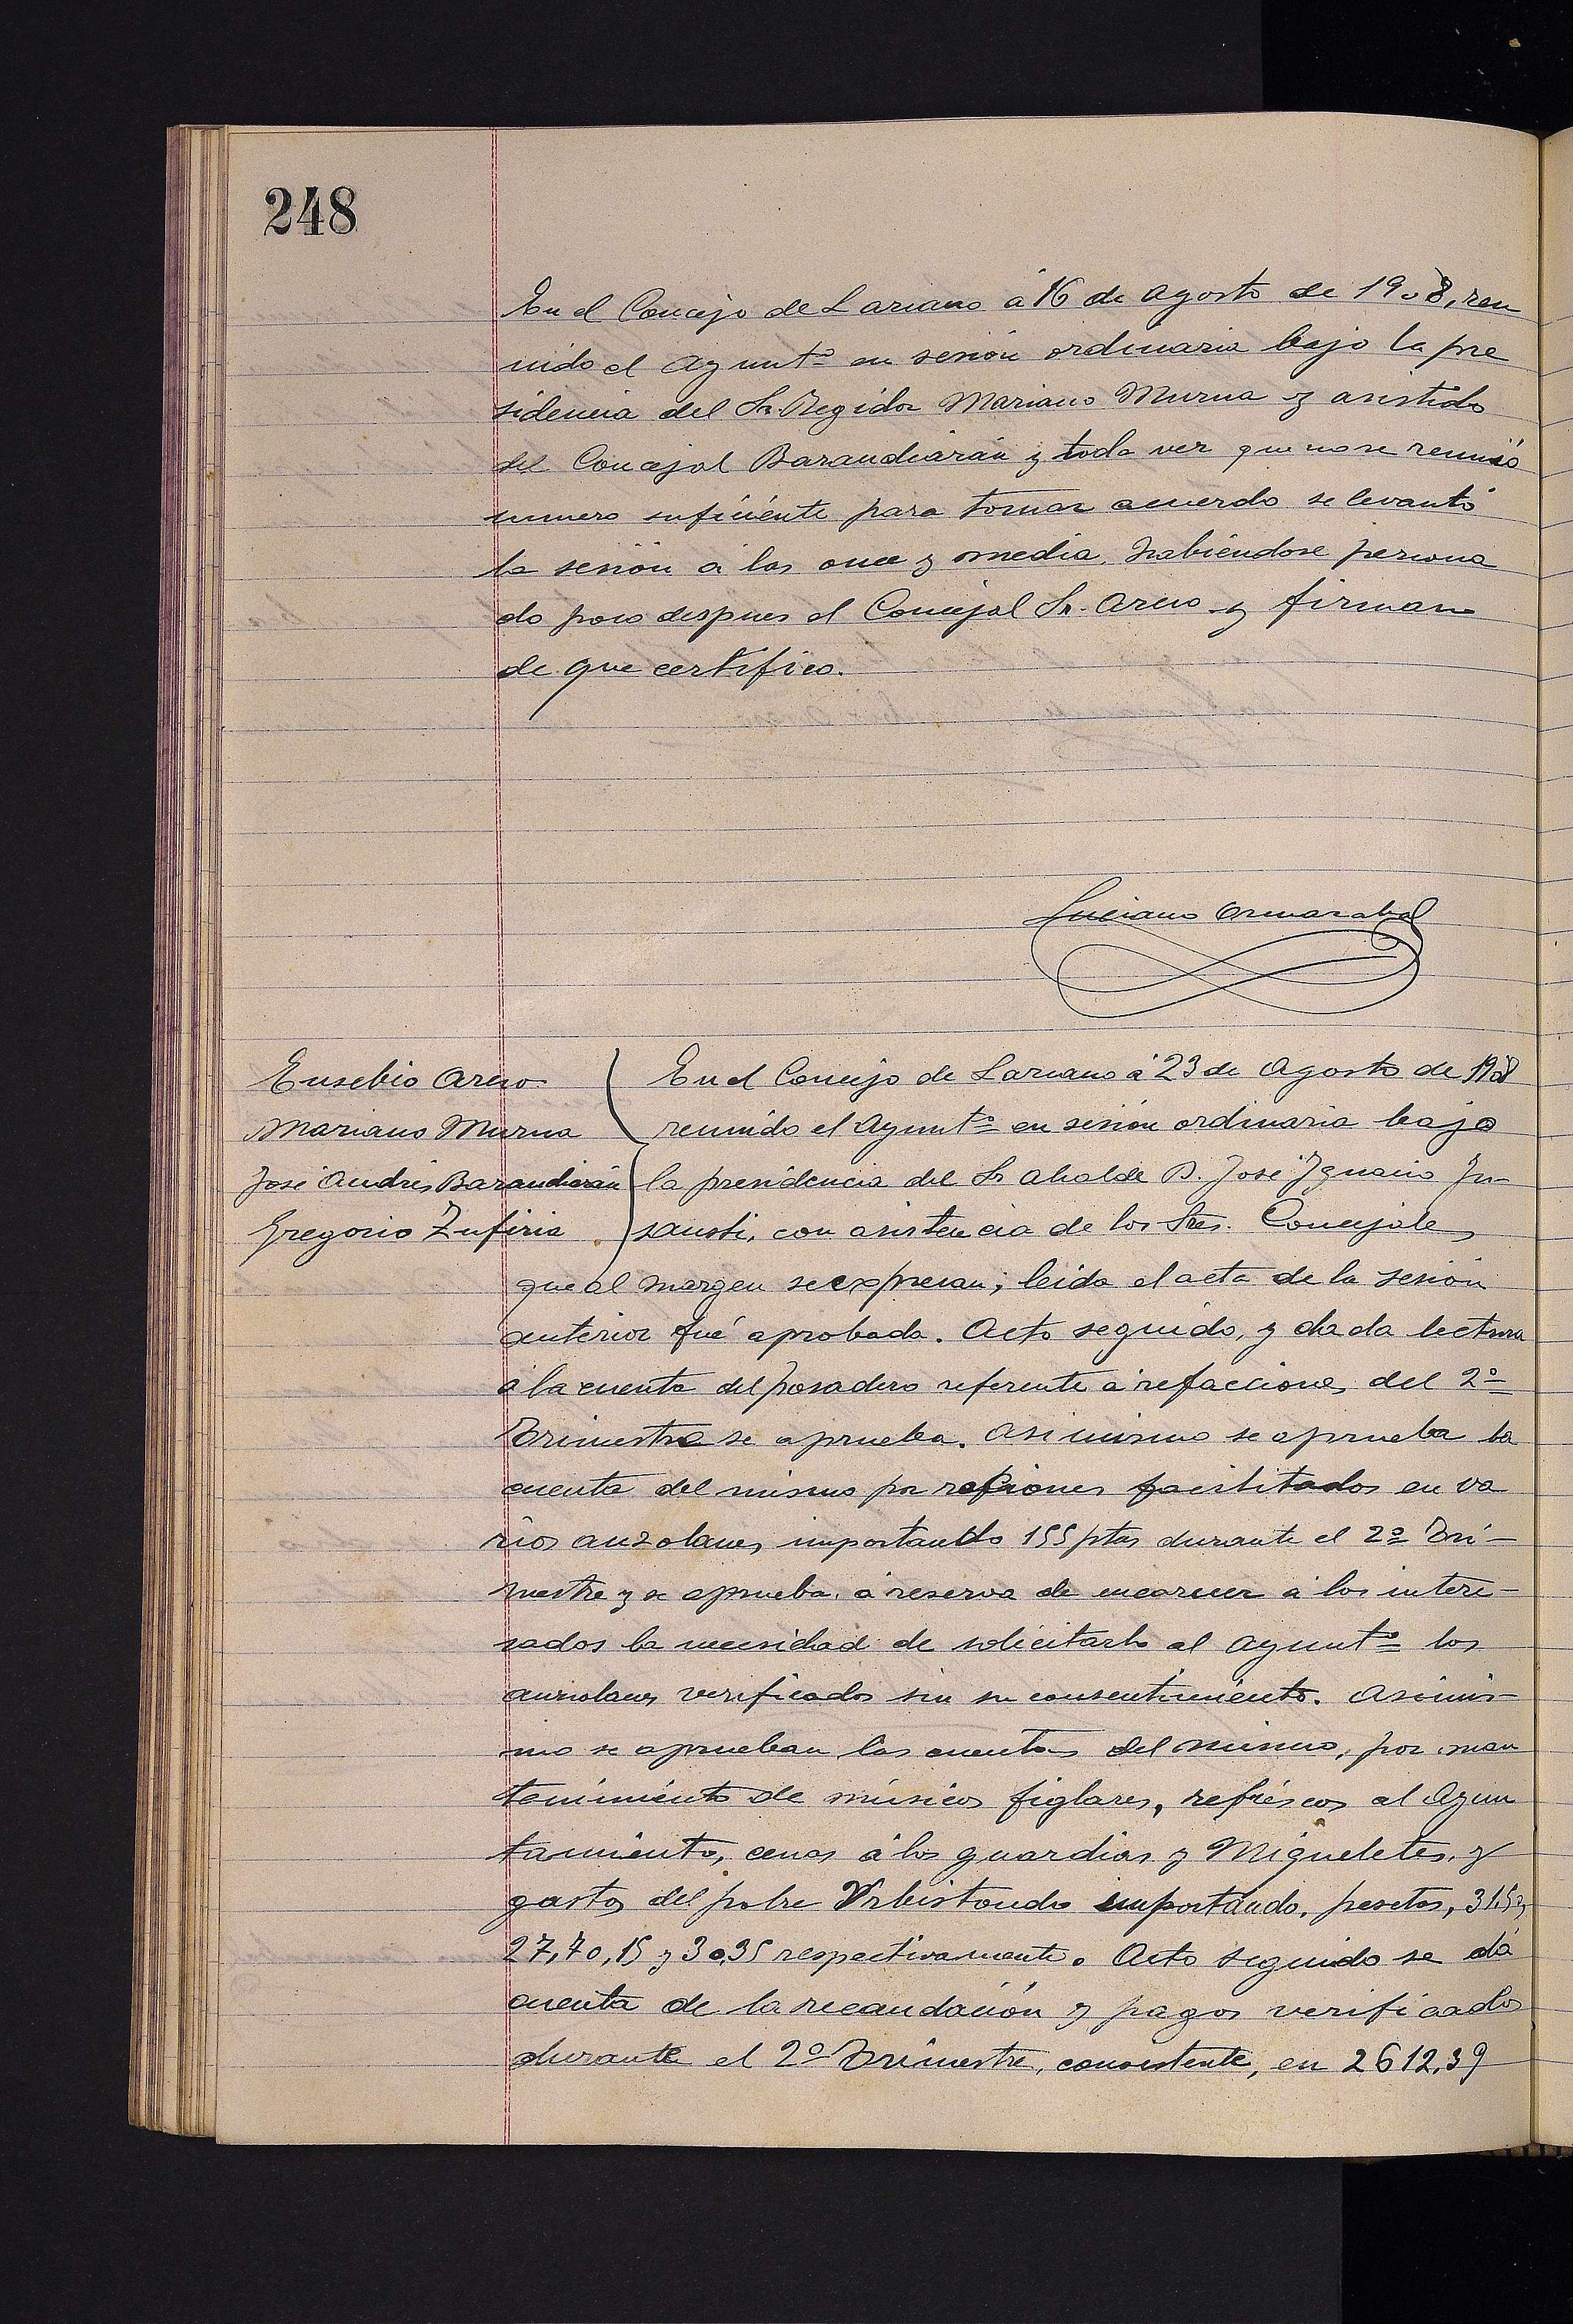 248
En el Concejo de Lazcano á 16 de Agosto de 1908, reu
nido el Ayuntº en sesión ordinaria bajo la pre
sidencia del Sr. Regidor Mariano Murua y asistido
del Concejal Barandiarán y toda vez que no se reunió
numero suficiente para tomar acuerdo se levantó
la sesión á las once y media, habiéndose persona
do poco despues el Concejal Sr. Arcno y firman
de que certifico.
Luciano Ormazabal
Eusebio Arcno
Mariano Murua
José Andrés Barandiarán
Gregorio Zufiria
En el Concejo de Lazcano á 23 de Agosto de 1908
reunido el Ayuntº en sesión ordinaria bajo
la presidencia del Sr Alcalde D. José Ygnacio Yn-
sausti, con asistencia de los Sres. Concejales
que al margen se expresan; leida el acta de la sesión
anterior fué aprobada. Acto seguido, y dada lectura
á la cuenta del posadero referente á refacciones del 2º
Trimestre se aprueba. Asimismo se aprueba la
cuenta del mismo por refaciones facilitados en va
rios auzolanes importando 155 ptas durante el 2º Tri-
mestre y se aprueba, á reserva de encarecer á los intere-
sados la necesidad de solicitarlo al Ayuntº los
auzolanes verificados sin su consentimiento. Asimis-
mo se aprueban las cuentas del mismo, por man
tenimiento de músicos figlares, refréscos al Ayun
tamiento, cenas á los guardias y Migueletes, y
gastos del pobre Urbistondo importando, pesetas, 31,50,
27,70, 15 y 30,35 respectivamente. Acto seguido se dá
cuenta de la recaudación y pagos verificados
durante el 2º Trimestre, consistente, en 2612,39